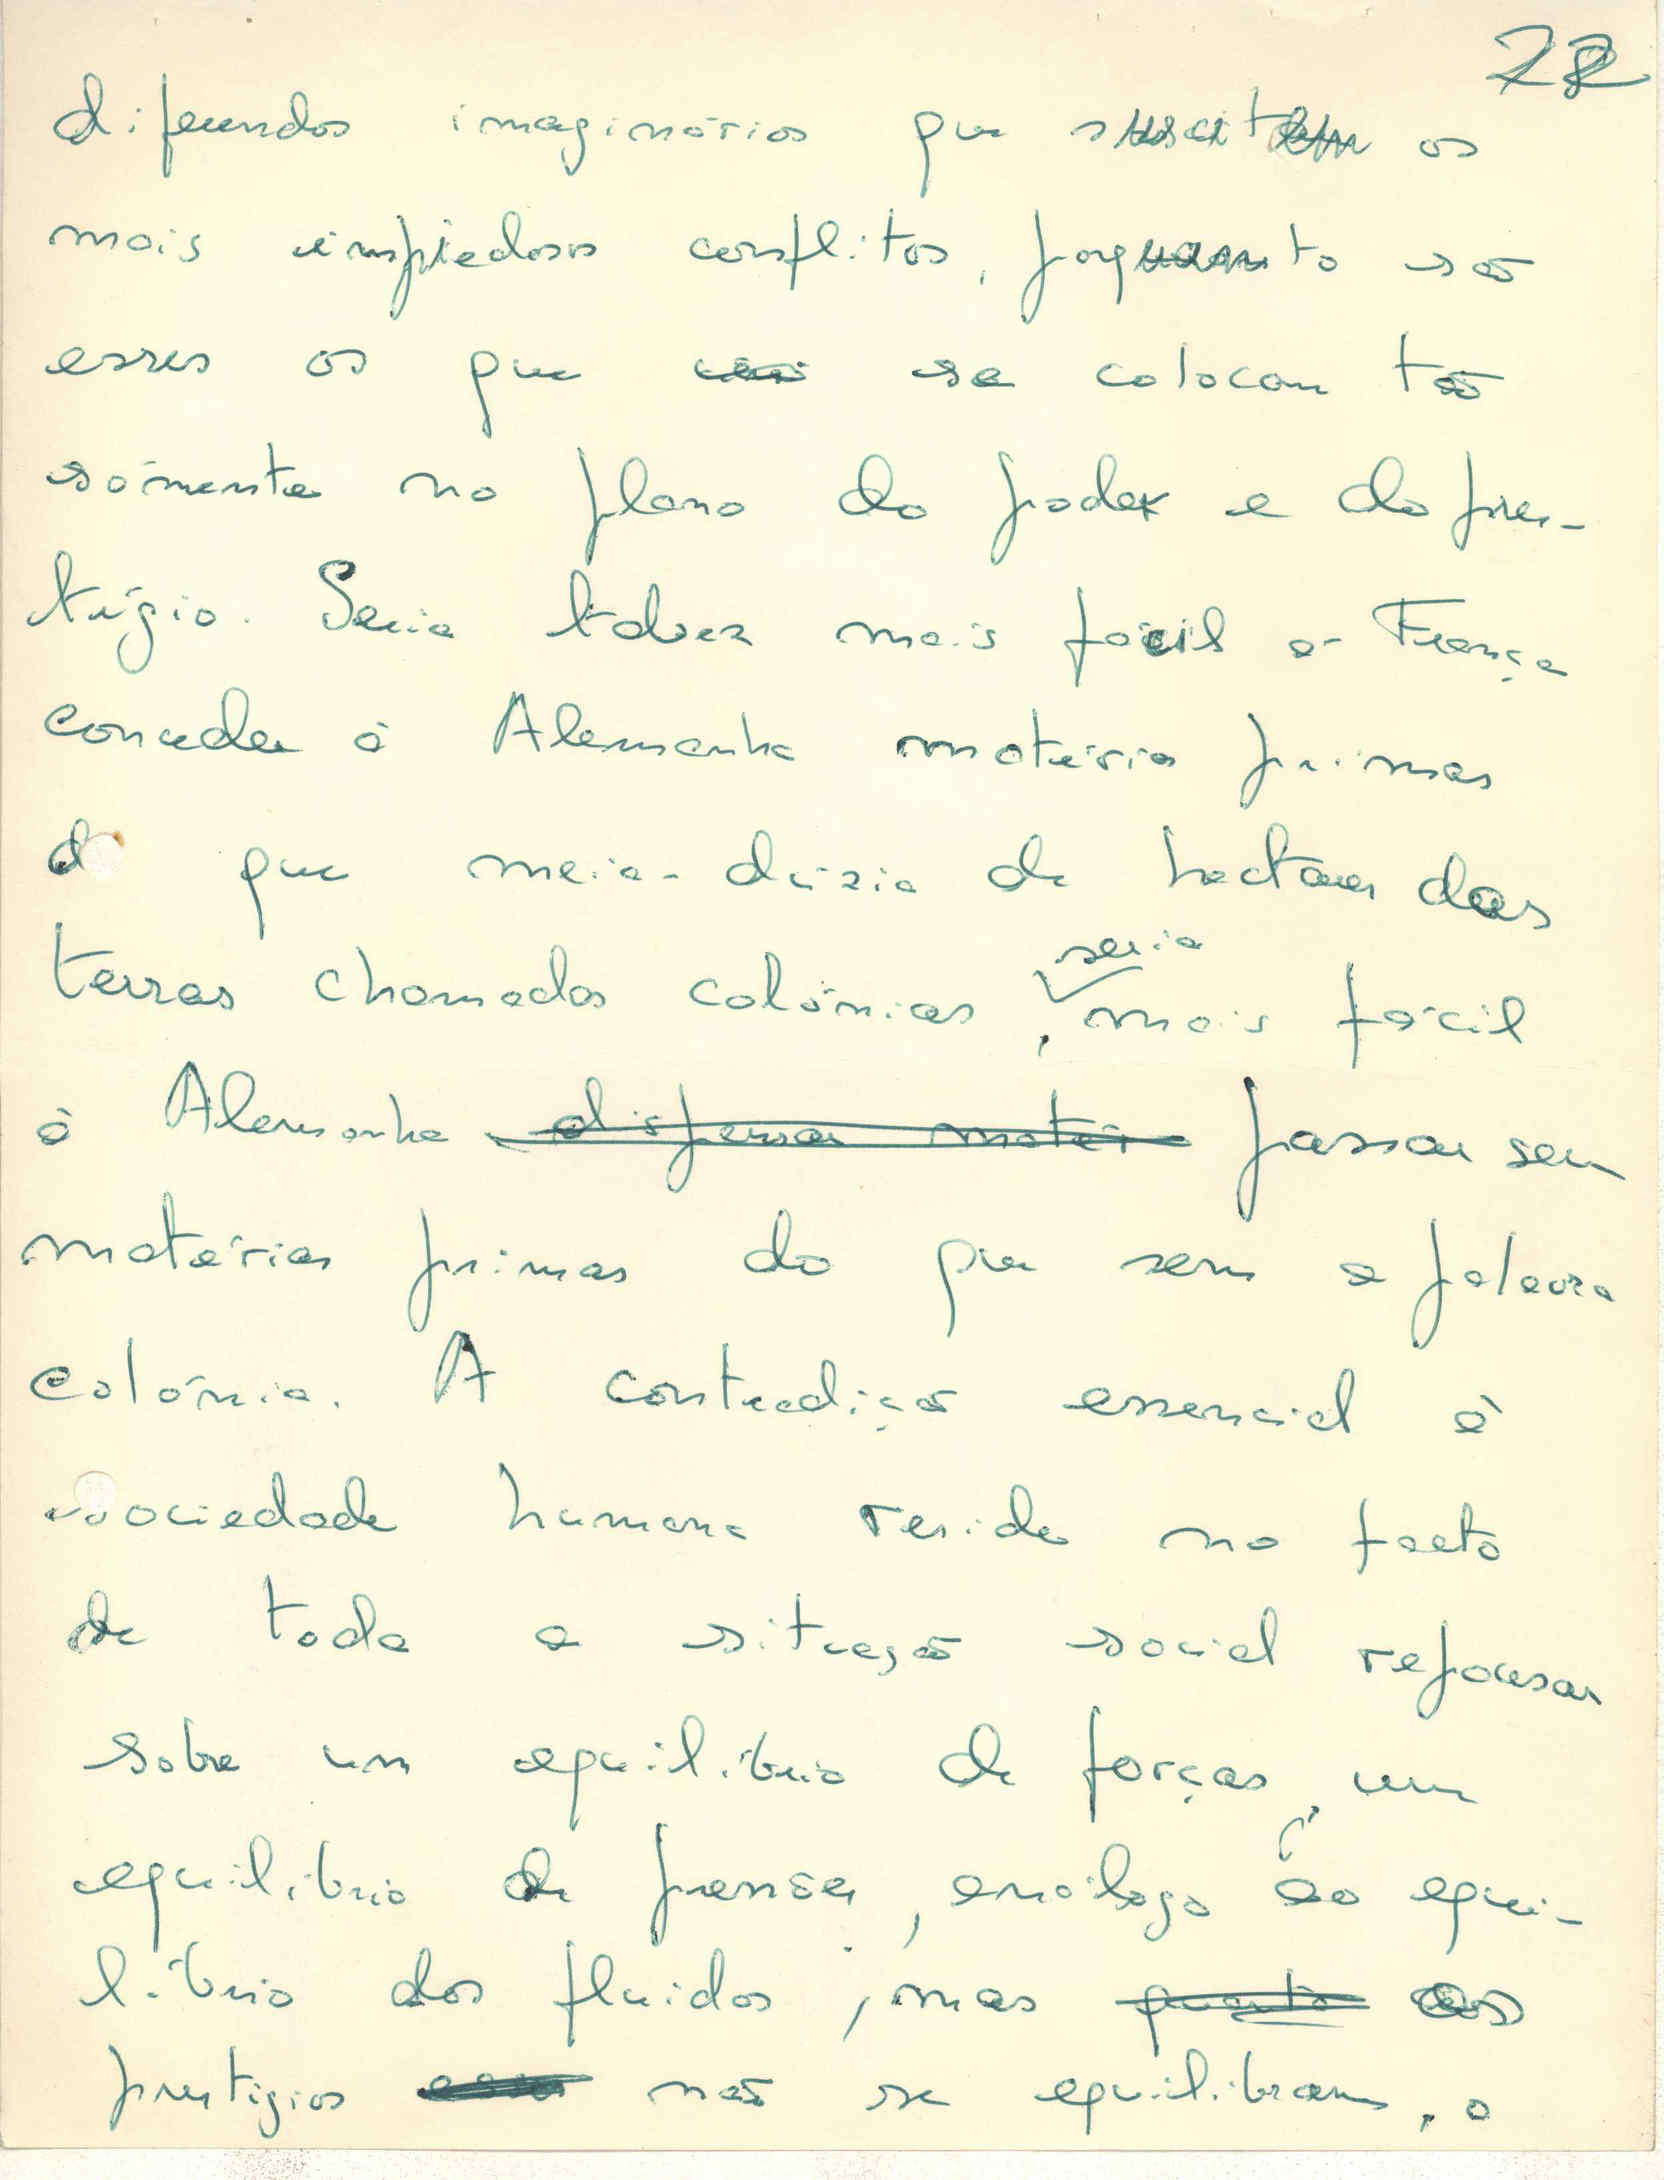 22
diferendos imaginários que suscitem os
mais impiedosos conflitos, porquanto são
esses os que se colocam tão
sòmente no plano do poder e do pres-
tígio. Seria talvez mais fácil a França
conceder à Alemanha matérias primas
do que meia-dúzia de hectares das
terras chamadas colónias, seria mais fácil
à Alemanha dispensar matéri passar sem
matérias primas do que sem a palavra
colónia. A contradição essencial à
sociedade humana reside no facto
de toda a situação social repousar
sobre um equilíbrio de forças, um
equilíbrio de pressões, análogo ao equi-
líbrio dos fluidos, mas quanto os
prestígios não se equilibram, o